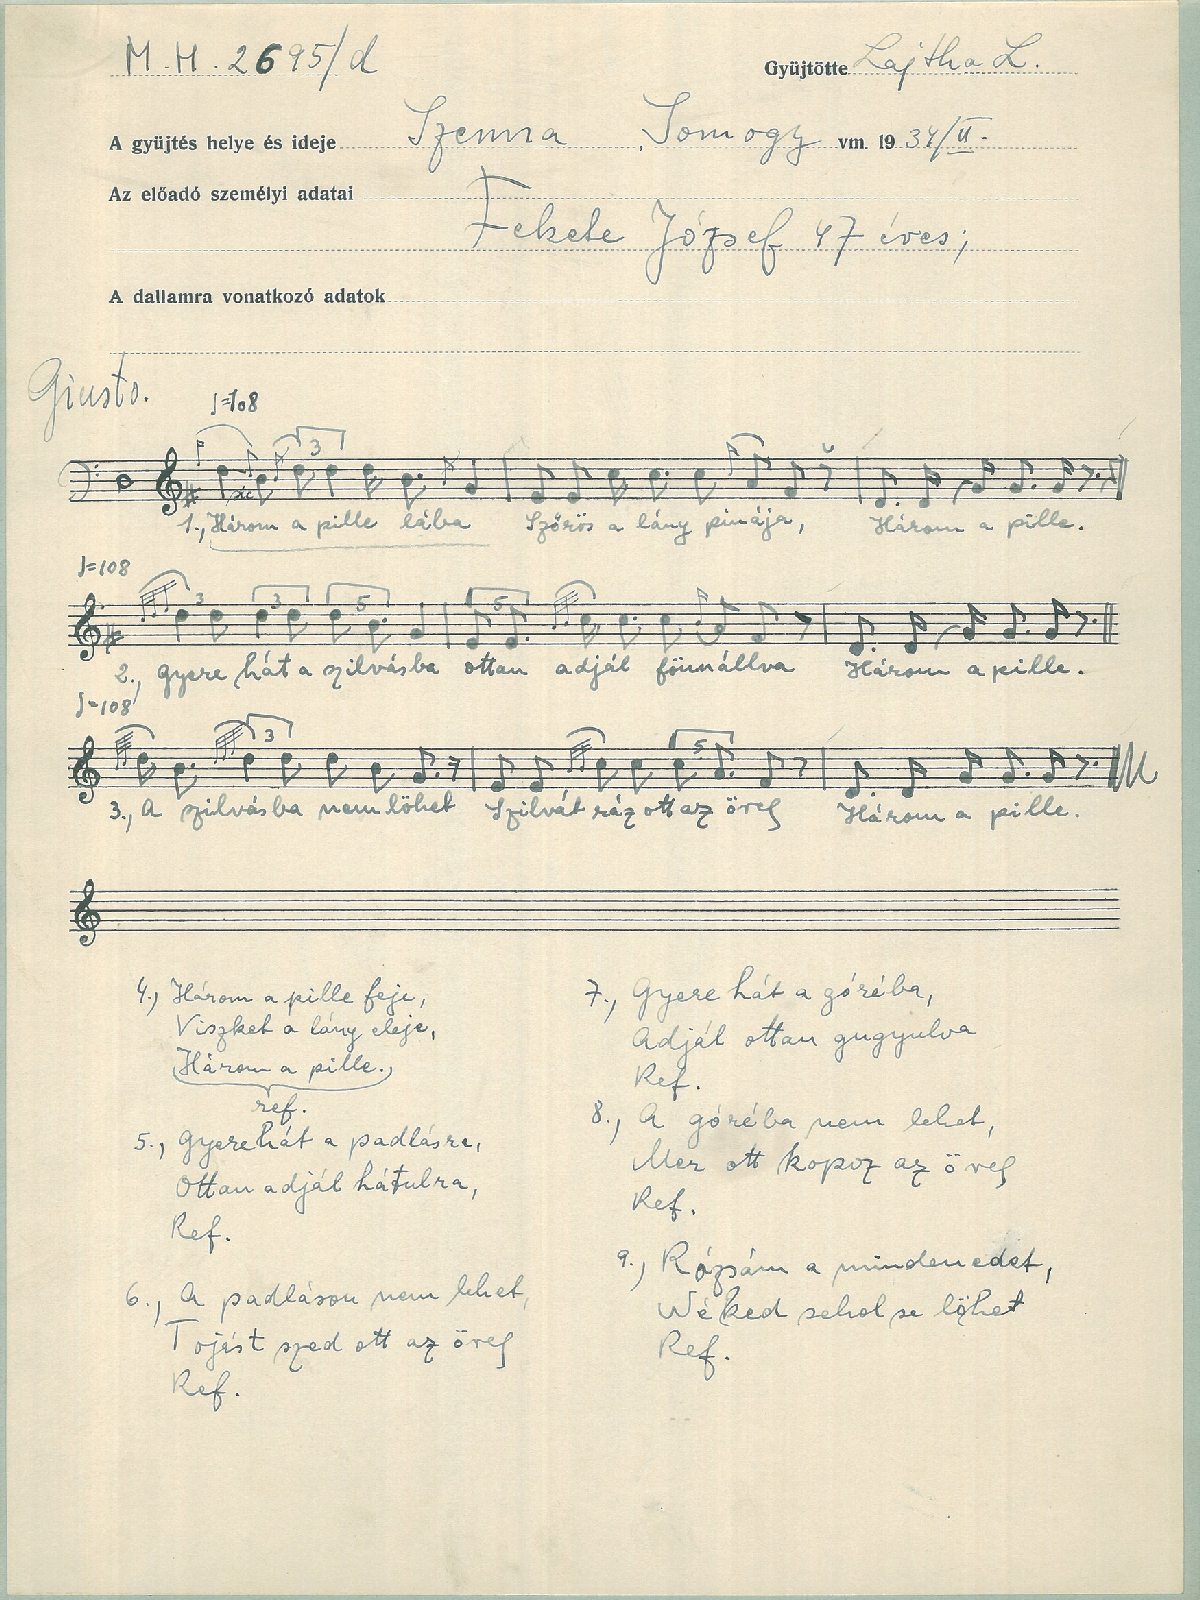 M. H. 2695/d
Gyüjtötte Lajtha L.
A gyüjtés helye és ideje Szenna Somogy vm. 1934/II.
Az előadó személyi adatai
Fekete József 47 éves;
A dallamra vonatkozó adatok
Giusto.
♩=108
3
1., Három a pille lába Szőrös a lány pinája, Három a pille.
♩=108
3 3 5 5
2., gyere hát a szilvásba ottan adjál fönnállva Három a pille.
♩=108
3 5
3., A szilvásba nem löhet Szilvát ráz ott az öreg Három a pille.
4., Három a pille feje,
Viszket a lány eleje,
Három a pille.
ref.
5., Gyere hát a padlásra,
Ottan adjál hátulra,
Ref.
6., A padláson nem lehet,
Tojást szed ott az öreg
Ref.
7., Gyere hát a góréba,
Adjál ottan gugyulva
Ref.
8., A góréba nem lehet,
Mer ott kopoz az öreg
Ref.
9., Rózsám a mindenedet,
Néked sehol se löhet
Ref.